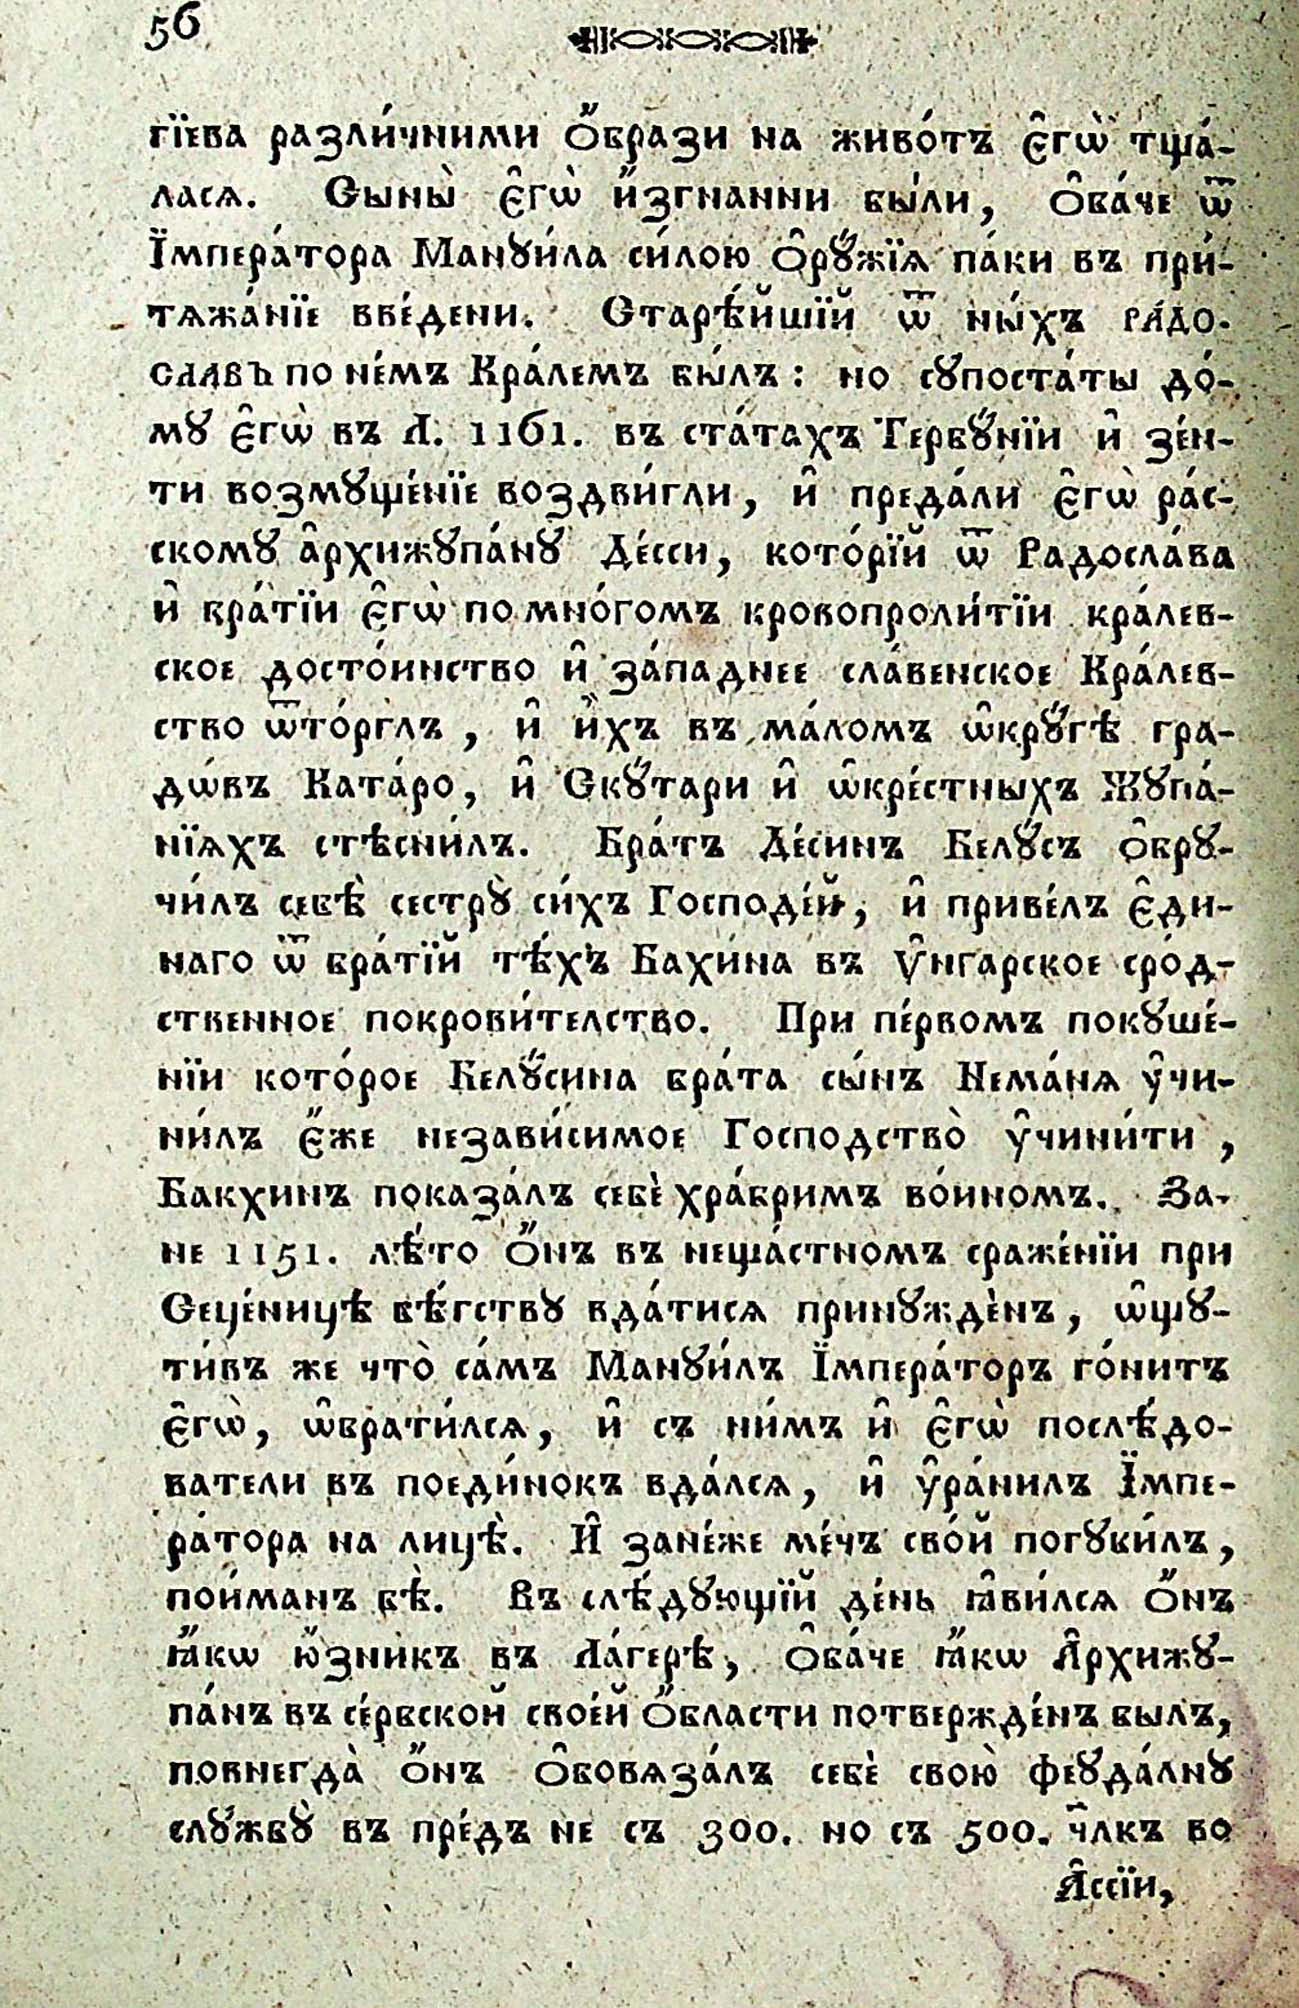 56
гїева разли́чними о҆́брази на живо́тъ є҆гѡ̀ тща́-
лася. Сыны̀ є҆гѡ̀ и҆́згнанни бы́ли, о҆ба́че ѿ
І҆мпера́тора Мануи́ла си́лою о҆рꙋ́жїѧ па́ки въ при́-
тѧжа́нїе вве́дени. Старѣ́йшїй ѿ ны́хъ ра́до-
славъ по не́мъ Кра́лемъ бы́лъ: но сꙋпоста́ты до́-
мꙋ є҆гѡ̀ въ Л. 1161. въ ста́тахъ Тербꙋ́нїи и҆ зе́н-
ти возмꙋще́нїе воздви́гли, и҆ преда́ли є҆гѡ̀ ра́с-
скомꙋ а҆рхижꙋпа́нꙋ Де́сси, кото́рїй ѿ Радосла́ва
и҆ бра́тїи є҆гѡ̀ по мно́гомъ кровопроли́тїи кра́лев-
ское досто́инство и҆ за́паднее сла́венское Кра́лев-
ство ѿто́рглъ, и҆ и҆̀хъ въ ма́ломъ ѡ҆крꙋ́гѣ гра-
дѡ́въ Ката́ро, и҆ Скꙋ́тари и҆ ѡ҆кре́стныхъ Жꙋпа́-
нїѧхъ стѣсни́лъ. Бра́тъ Де́синъ Белꙋ́съ о҆брꙋ-
чи́лъ себѣ̀ сестрꙋ̀ си́хъ Господе́й, и҆ приве́лъ є҆ди-
наго ѿ бра́тїй тѣ́хъ Бахи́на въ ѵ҆нгарское сро́д-
ственное покрови́телство. При пе́рвомъ покꙋше́-
нїи кото́рое Белꙋ́сина бра́та сы́нъ Нема́нѧ ᲂу҆чи-
ни́лъ є҆́же незави́симое Господство̀ ᲂу҆чини́ти,
Бакхинъ показа́лъ себѐ хра́бримъ во́иномъ. За-
не 1151. лѣ́то о҆́нъ въ неща́стномъ сраже́нїи при
Сеце́ницѣ бѣ́гствꙋ вда́тисѧ принꙋждѐнъ, ѡ҆щꙋ-
ти́въ же что̀ са́мъ Манꙋи́лъ І҆мпера́торъ го́нитъ
є҆гѡ̀, ѡ҆брати́лсѧ, и҆ съ ни́мъ и҆ є҆гѡ̀ послѣ́до-
ватели въ поеди́нокъ вда́лсѧ, и҆ ᲂу҆ра́нилъ І҆мпе-
ра́тора на лицѣ̀. И҆ зане́же ме́чъ сво́й погꙋби́лъ,
пои́манъ бѣ̀. Въ слѣ́дꙋющїй де́нь ꙗ҆ви́лсѧ о҆́нъ
ꙗ҆́кѡ ю҆́зникъ въ Ла́герѣ, о҆ба́че ꙗ҆́кѡ А҆рхижꙋ-
па́нъ въ се́рбской свое́й о҆́бласти потвержде́нъ былъ,
повнегда̀ о҆́нъ о҆бовѧза́лъ себѐ свою̀ феꙋда́лнꙋ
слꙋ́жбꙋ̀ въ пре́дъ не съ 300. но съ 500. ч҃лкъ во
А҆ссїи,